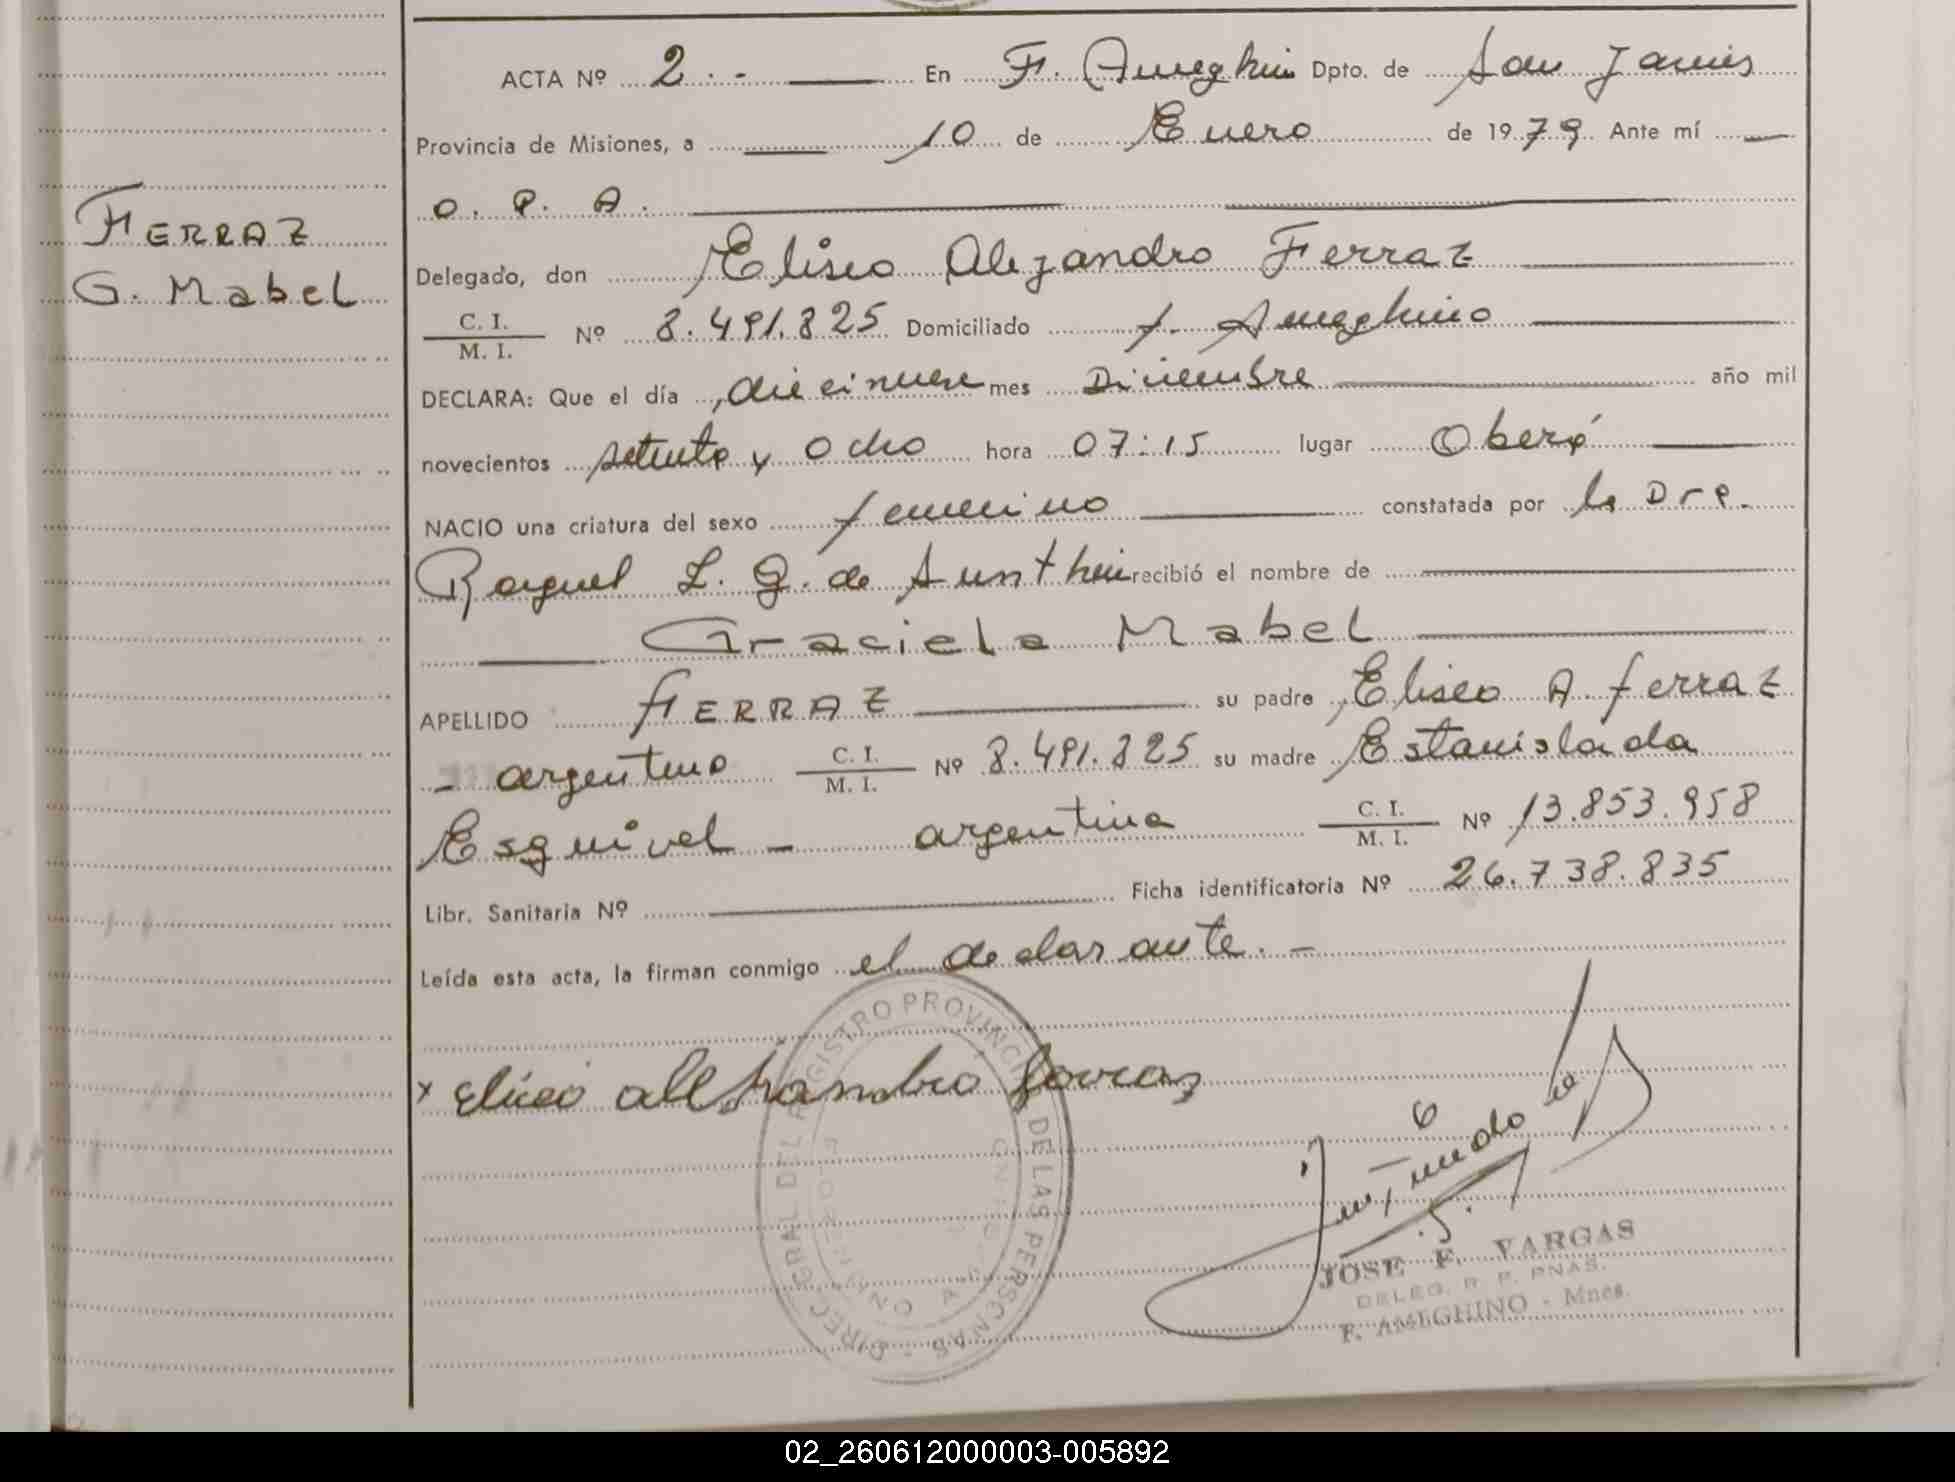 ACTA Nº 2.- En F. Ameghino Dpto. de San Javier
Provincia de Misiones, a 10 de Enero de 1979 Ante mí
O. P. A.
FERRAZ
G. Mabel
Delegado, don Eliseo Alejandro Ferraz
C. I.
M. I. Nº 8.491.825 Domiciliado F. Ameghino
DECLARA: Que el día diecinueve mes Diciembre año mil
novecientos setenta y ocho hora 07:15 lugar Oberá
NACIO una criatura del sexo femenino constatada por la Dra.
Raquel L. G. de recibió el nombre de
Graciela Mabel
APELLIDO FERRAZ su padre Eliseo A. Ferraz
- argentino C. I.
M. I. Nº 8.491.825 su madre Estanislada
Esquivel - argentina C. I.
M. I. Nº 13.853.958
Libr. Sanitaria Nº Ficha identificatoria Nº 26.738.835
Leída esta acta, la firman conmigo el declarante.-
DIREC. GRAL DEL REGISTRO PROVINCIAL DE LAS PERSONAS
x
JOSE F. VARGAS
DELEG. R. P. PNAS.
F. AMEGHINO - Mnes.
02_260612000003-005892